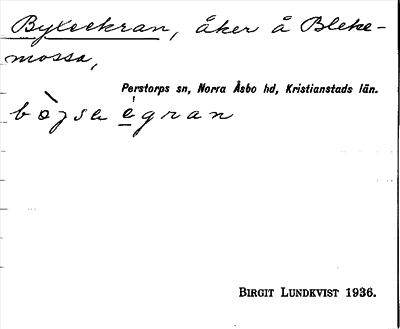 Byxeekran, åker å Bleke-
mossa,
Perstorps sn, Norra Åsbo hd, Kristianstads län.
BIRGIT LUNDKVIST 1936.